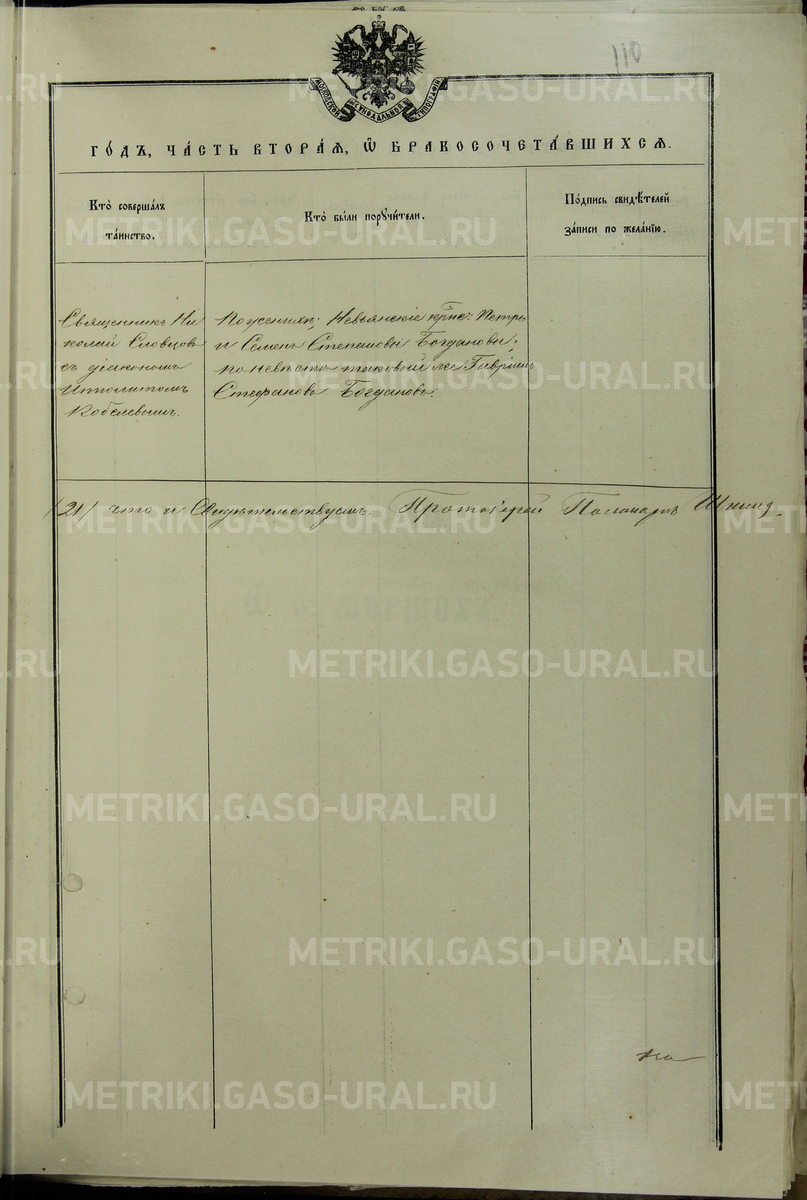 110
МОСКОВСКОЙ СѴНОДАЛЬНОЙ ТИПОГРАФІИ
ГО́ДЪ, ЧА́СТЬ ВТОРА́Я, Ѡ҆ БРАКОСОЧЕТА́ВШИХСЯ.
Кто̀ соверша́лъ
та́инство.
Кто̀ бы́ли порꙋчи́тели.
По́дпись свидѣ́телей
за́писи по жела́нїю.
Священникъ Ни
колай Словцовъ
съ діакономъ
Ипполитомъ
Кобелевымъ.
По женихѣ: Невьянскіе крѣс: Петръ
и Семенъ Степановы Богдановы;
по невѣстѣ таковый же Гавріилъ
Стефановъ Богдановъ.
/21/ что и Свидѣтельствуемъ. Протоіерей
METRIKI.GASO-URAL.RU